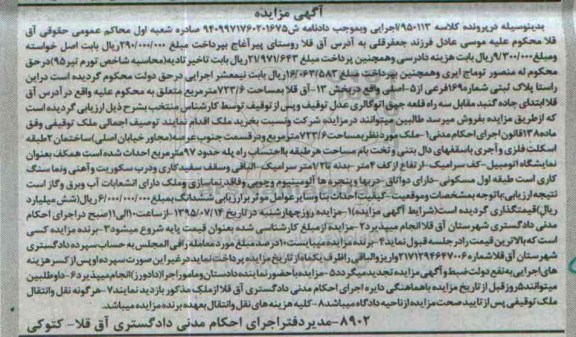 آگهی مزایده
بدینوسیله درپرونده کلاسه 950113/اجرایی وبموجب دادنامه ش9409971760201675 صادره شعبه اول محاکم عمومی حقوقی آق
قلا محکوم علیه موسی عادل فرزند جعفرقلی به آدرس آق قلا روستای پیرآغاج بپرداخت مبلغ 290/000/000ریال بابت اصل خواسته
ومبلغ 9/300/000ریال بابت هزینه دادرسی وهمچنین پرداخت مبلغ 21/971/643ریال بابت تاخیر تادیه(محاسبه شاخص تورم تیر95)درحق
محکوم له منصور توماج ایری وهمچنین بپرداخت مبلغ 16/063/583ریال بابت نیمعشر اجرایی درحق دولت محکوم گردیده است دراین
راستا پلاک ثبتی شماره169فرعی از5-اصلی واقع دربخش 13-آق قلا بمساحت 723/6مترمربع متعلق به محکوم علیه واقع در آدرس آق
قلا ابتدای جاده گنبد مقابل سه راه قلعه جیق اتوگالری عدل توقیف وپس از توقیف توسط کارشناس منتخب بشرح ذیل ارزیابی گردیده است
که ازطریق مزایده بفروش میرسد طالبین میتوانند درمزایده شرکت ونسبت بخرید ملک اقدام نمایند توصیف اجمالی ملک توقیفی وفق
ماده138قانون اجرای احکام مدنی:1-ملک موردنظر بمساحت723/6مترمربع ودرقسمت جنوب عرصه(مجاور خیابان اصلی)ساختمان2طبقه
اسکلت فلزی وآجری باسقفهای دال بتنی و تخت بام مساحت هرطبقه بااحتساب راه پله حدود97مترمربع احداث شده است همکف بعنوان
نمایشگاه اتومبیل-کف سرامیک-ارتفاع ازکف4متر-بدنه تا2متر سرامیک-الباقی وسقف سفیدکاری ودرب سکوریت وآهنی ونما سنگ
کاری است طبقه اول مسکونی-دارای دواتاق-دربها وپنجره ها آلومینیوم وچوبی وفاقد نماسازی وملک دارای انشعابات آب وبرق وگاز است
نتیجه ارزیابی:باتوجه بمشخصات وموقعیت-کیفیت احداث بنا وسایر عوامل موثر برارزیابی ششدانگ بمبلغ 6/000/000/000ریال(شش میلیارد
ریال)قیمتگذاری گردیده است(شرایط آگهی مزایده)1-مزایده روزچهارشنبه در تاریخ 1395/07/14-ازساعت10الی11صبح دراجرای احکام
مدنی دادگستری شهرستان آق قلا انجام میپذیرد2-مزایده ازمبلغ کارشناسی شده بعنوان قیمت پایه شروع میشود3-برنده مزایده کسی
است که بالاترین قیمت رادرجلسه قبول نماید4-برنده مزایده میبایست10درصد مبلغ موردمعامله رافی المجلس به حساب سپرده دادگستری
شهرستان آق قلا شماره2171294647006واریزوالباقی راظرف یکماه ازتاریخ مزایده پرداخت نماید درغیر این صورت سپرده اوپس ازکسر هزینه
های اجرایی به نفع دولت ضبط وآگهی مزایده تجدید میگردد5-مزایده باحضور نماینده دادستان ومامور اجرا(دادورز)انجام میپذیرد6-داوطلبین
میتوانند5روز قبل از تاریخ مزایده باهماهنگی دایره اجرای احکام مدنی دادگستری آق قلا ازملک مذکور بازدید نمایند7-هرگونه نقل وانتقال
ملک توقیفی پس از تایید صحت مزایده ازناحیه دادگاه میباشد8-کلیه هزینه های نقل وانتقال بعهده برنده مزایده میباشد.
8902-مدیردفتراجرای احکام مدنی دادگستری آق قلا- کتوکی